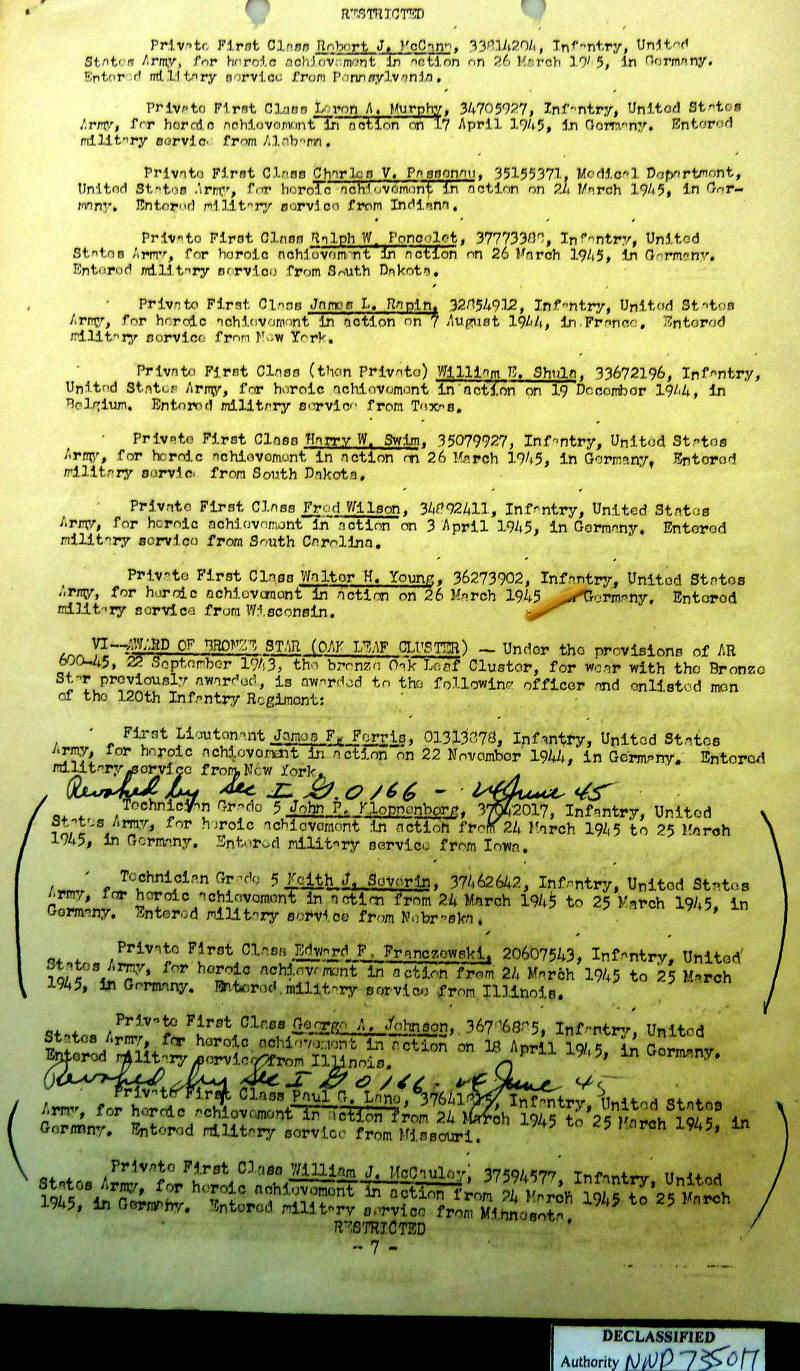 RESTRICTED
Private First Class Robert J. McCann, 33814204, Infantry, United
States Army, for heroic achievement in action on 26 March 1945, in Germany.
Entered military service from Pennsylvania.
Private First Class Loron A. Murphy, 34705927, Infantry, United States
Army, for heroic achievement in action on 17 April 1945, in Germany. Entered
military service from Alabama.
Private First Class Charles V. Passonau, 35155371, Medical Department,
United States Army, for heroic achievement in action on 24 March 1945, in Ger-
many. Entered military service from Indiana.
Private First Class Ralph W. Poncelet, Infantry, United
States Army, for heroic achievement in action on 26 March 1945, in Germany.
Entered military service from South Dakota.
Private First Class James L. Rapin, 32854912, Infantry, United States
Army, for heroic achievement in action on 7 August 1944, in France. Entered
military service from New York.
Private First Class (then Private) William E. Shula, 33672196, Infantry,
United States Army, for heroic achievement in action on 19 December 1944, in
Belgium. Entered military service from Texas.
Private First Class Harry W. Swim, 35079927, Infantry, United States
Army, for heroic achievement in action on 26 March 1945, in Germany, Entered
military service from South Dakota.
Private First Class Fred Wilson, 34892411, Infantry, United States
Army, for heroic achievement in action on 3 April 1945, in Germany. Entered
military service from South Carolina.
Private First Class Walter H. Young, 36273902, Infantry, United States
Army, for heroic achievement in action on 26 March 1945 Germany. Entered
military service from Wisconsin.
VI--AWARD OF BRONZE STAR (OAK LEAF CLUSTER) -- Under the provisions of AR
600-45, 22 September 1943, the bronze Oak Leaf Cluster, for wear with the Bronze
Star previously awarded, is awarded to the following officer and enlisted men
of the 120th Infantry Regiment:
First Lieutenant James F. Ferris, 01313878, Infantry, United States
Army, for heroic achievement in action on 22 November 1944, in Germany. Entered
military service from New York.
Revoked by Sec I G.O 166 - June 45
Technician Grade 5 John P. Kloppenborg, Infantry, United
States Army, for heroic achievement in action from 24 March 1945 to 25 March
1945, in Germany. Entered military service from Iowa.
Technician Grade 5 Keith J. Severin, 37462642, Infantry, United States
Army, for heroic achievement in action from 24 March 1945 to 25 March 1945, in
Germany. Entered military service from Nebraska.
Private First Class Edward F. Franczewski, 20607543, Infantry, United
States Army, for heroic achievement in action from 24 March 1945 to 25 March
1945, in Germany. Entered military service from Illinois.
Private First Class George A. Johnson, Infantry, United
States Army, for heroic achievement in action on 18 April 1945, in Germany.
Entered military service from Illinois.
Revoked by Sec I G O 166 - June 45
Private First Class Paul G. Lane, Infantry, United States
Army, for heroic achievement in action from 24 March 1945 to 25 March 1945, in
Germany. Entered military service from Missouri.
Private First Class William J. McCauley, 37594577, Infantry, United
States Army, for heroic achievement in action from 24 March 1945 to 25 March
1945, in Germany. Entered military service from Minnesota.
RESTRICTED
- 7 -
DECLASSIFIED
Authority NND 735017